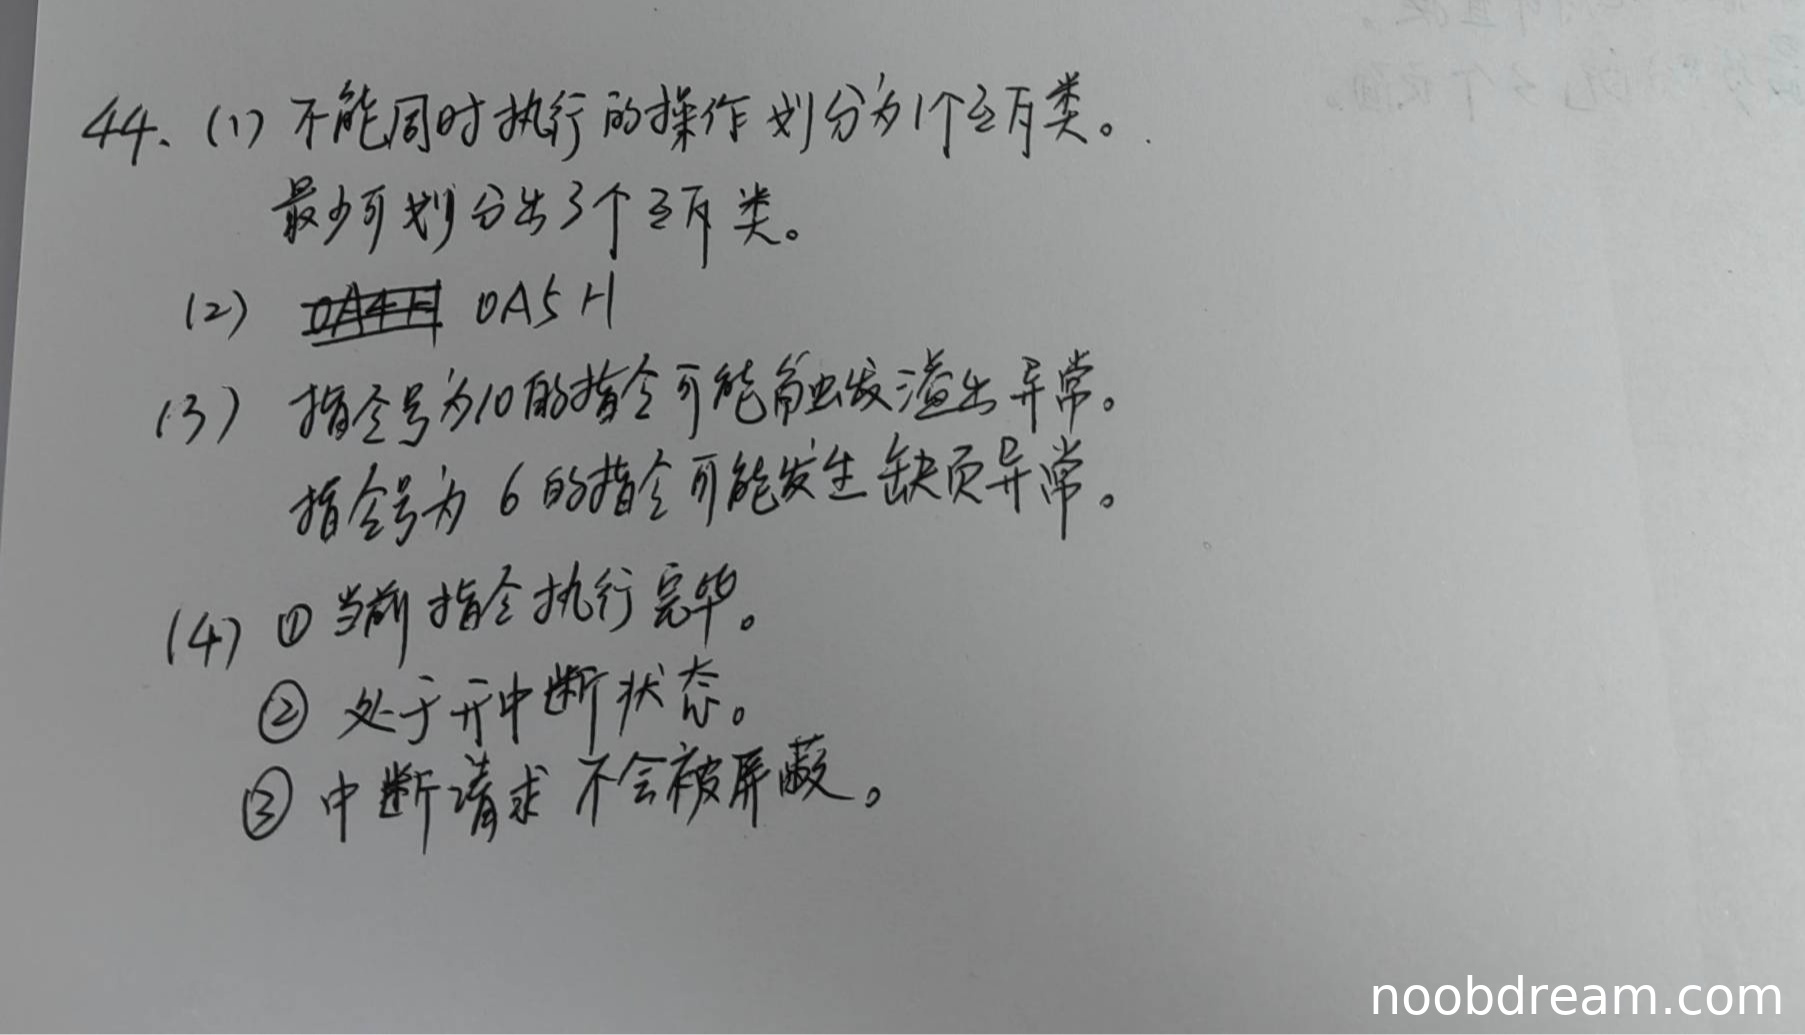 44、(1) 不能同时执行的操作划分为1个互斥类。
最少可划分出3个互斥类。
(2) 0A4H 0A5H
(3) 指令号为10的指令可能触发溢出异常。
指令号为6的指令可能发生缺页异常。
(4) ①当前指令执行完毕。
② 处于开中断状态。
③ 中断请求不会被屏蔽。
noobdream.com